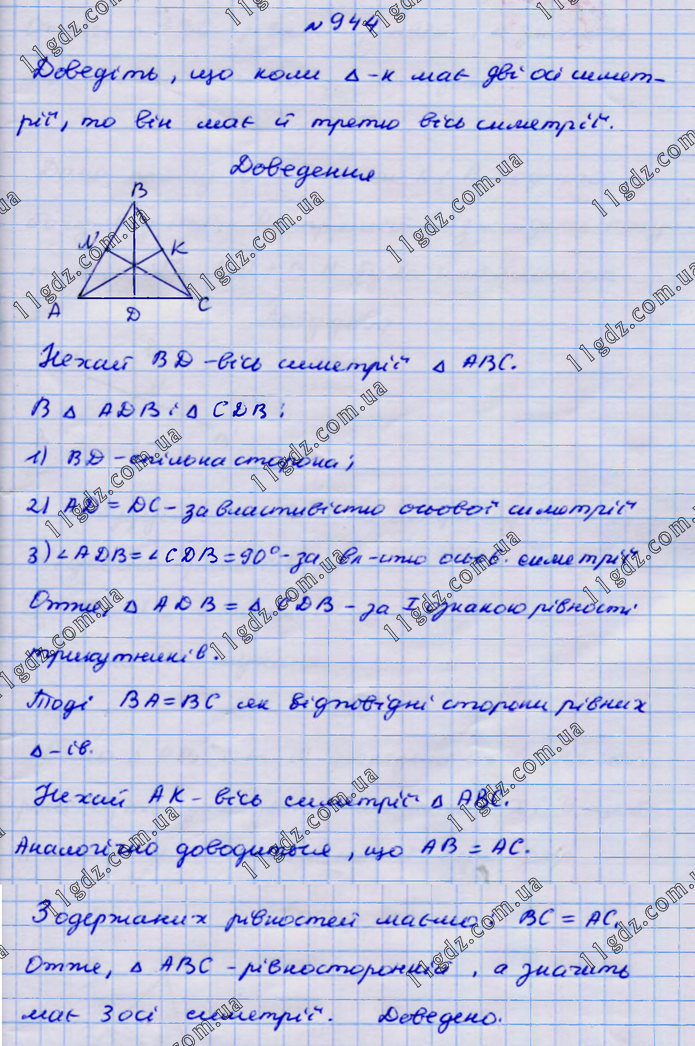 № 944
Доведіть, що коли Δ-к має дві осі симет-
рії, то він має й третю вісь симетрії.
Доведення
B
N K
A D C
Нехай BD - вісь симетрії Δ ABC.
В Δ ADB і Δ CDB:
1) BD - спільна сторона;
2) AD = DC - за властивістю осьової симетрії
3) ∠ADB = ∠CDB = 90° - за вл-стю осьов. симетрії
Отже, Δ ADB = Δ CDB - за I ознакою рівності
трикутників.
Тоді BA = BC як відповідні сторони рівних
Δ-ів.
Нехай AK - вісь симетрії Δ ABC.
Аналогічно доводиться, що AB = AC.
З одержаних рівностей маємо: BC = AC.
Отже, Δ ABC - рівносторонній, а значить
має 3 осі симетрії. Доведено.
11gdz.com.ua